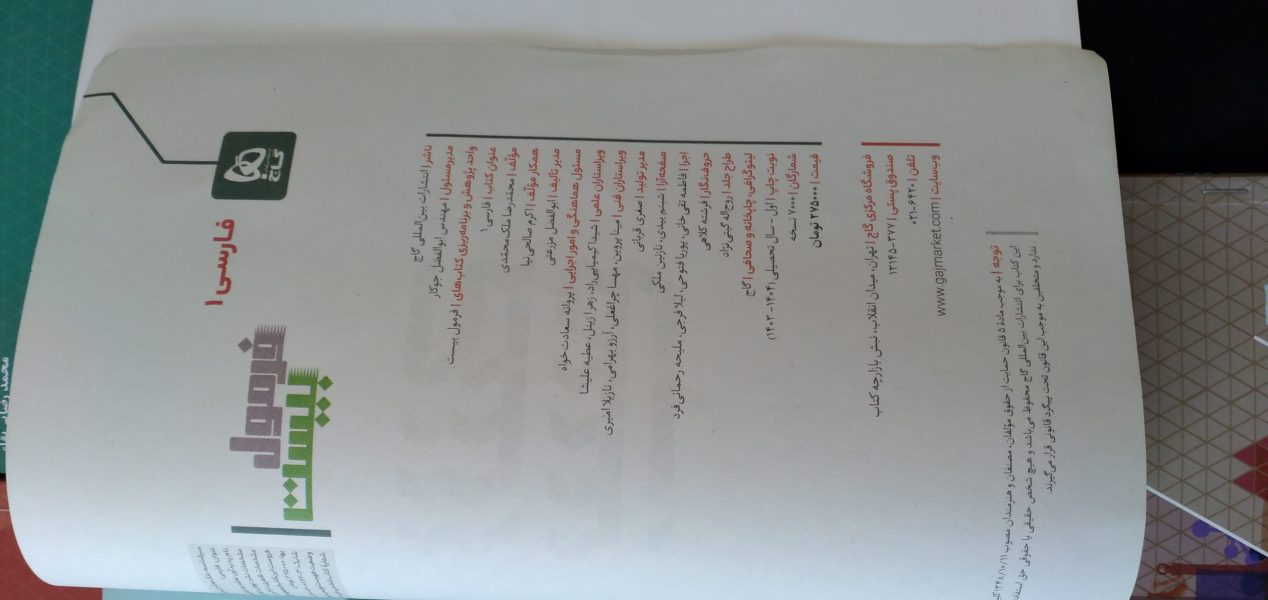 گاج
فارسی ۱
فرمول
بیست
ناشر | انتشارات بین‌المللی گاج
مدیرمسئول | مهندس ابوالفضل جوکار
واحد پژوهش و برنامه‌ریزی کتاب‌های | فرمول بیست
عنوان کتاب | فارسی ۱
مؤلف | محمدرضا ملک‌محمدی
همکار مؤلف | اکرم صالحی‌نیا
مدیر تألیف | ابوالفضل مزرعتی
مسئول هماهنگی و امور اجرایی | پروانه سعادت خواه
ویراستاران علمی | شیدا کیمیایی‌راد، زهرا زینل، عطیه علیشا
ویراستاران فنی | مینا پروین، مهسا چراغعلی، آرزو بهرامی، نازیلا امیری
مدیر تولید | صغری قربانی
صفحه‌آرا | شبنم بیدی، نازنین ملکی
اجرا | فاطمه تقی خانی، پوریا فتوحی، لیلا فرجی، ملیحه رحمانی فرد
حروفنگار | فرشته کلاهی
طراح جلد | روح‌اله گیتی‌نژاد
لیتوگرافی، چاپخانه و صحافی | گاج
نوبت چاپ | اول - سال تحصیلی (۱۴۰۴ - ۱۴۰۳)
شمارگان | ۷۰۰۰ نسخه
قیمت | ۲۷۵۰۰۰ تومان
فروشگاه مرکزی گاج | تهران، میدان انقلاب، نبش بازارچه کتاب
صندوق پستی | ۳۷۷-۱۳۱۴۵
تلفن | ۰۲۱-۶۴۲۰
وب‌سایت | www.gajmarket.com
توجه | به موجب مادهٔ ۵ قانون حمایت از حقوق مؤلفان، مصنفان و هنرمندان مصوب ۱۳۴۸/۱۰/۱۱
این کتاب برای انتشارات بین‌المللی گاج محفوظ می‌باشد و هیچ شخص حقیقی یا حقوقی حق
ندارد و متخلفین به موجب این قانون تحت پیگرد قانونی قرار می‌گیرند.